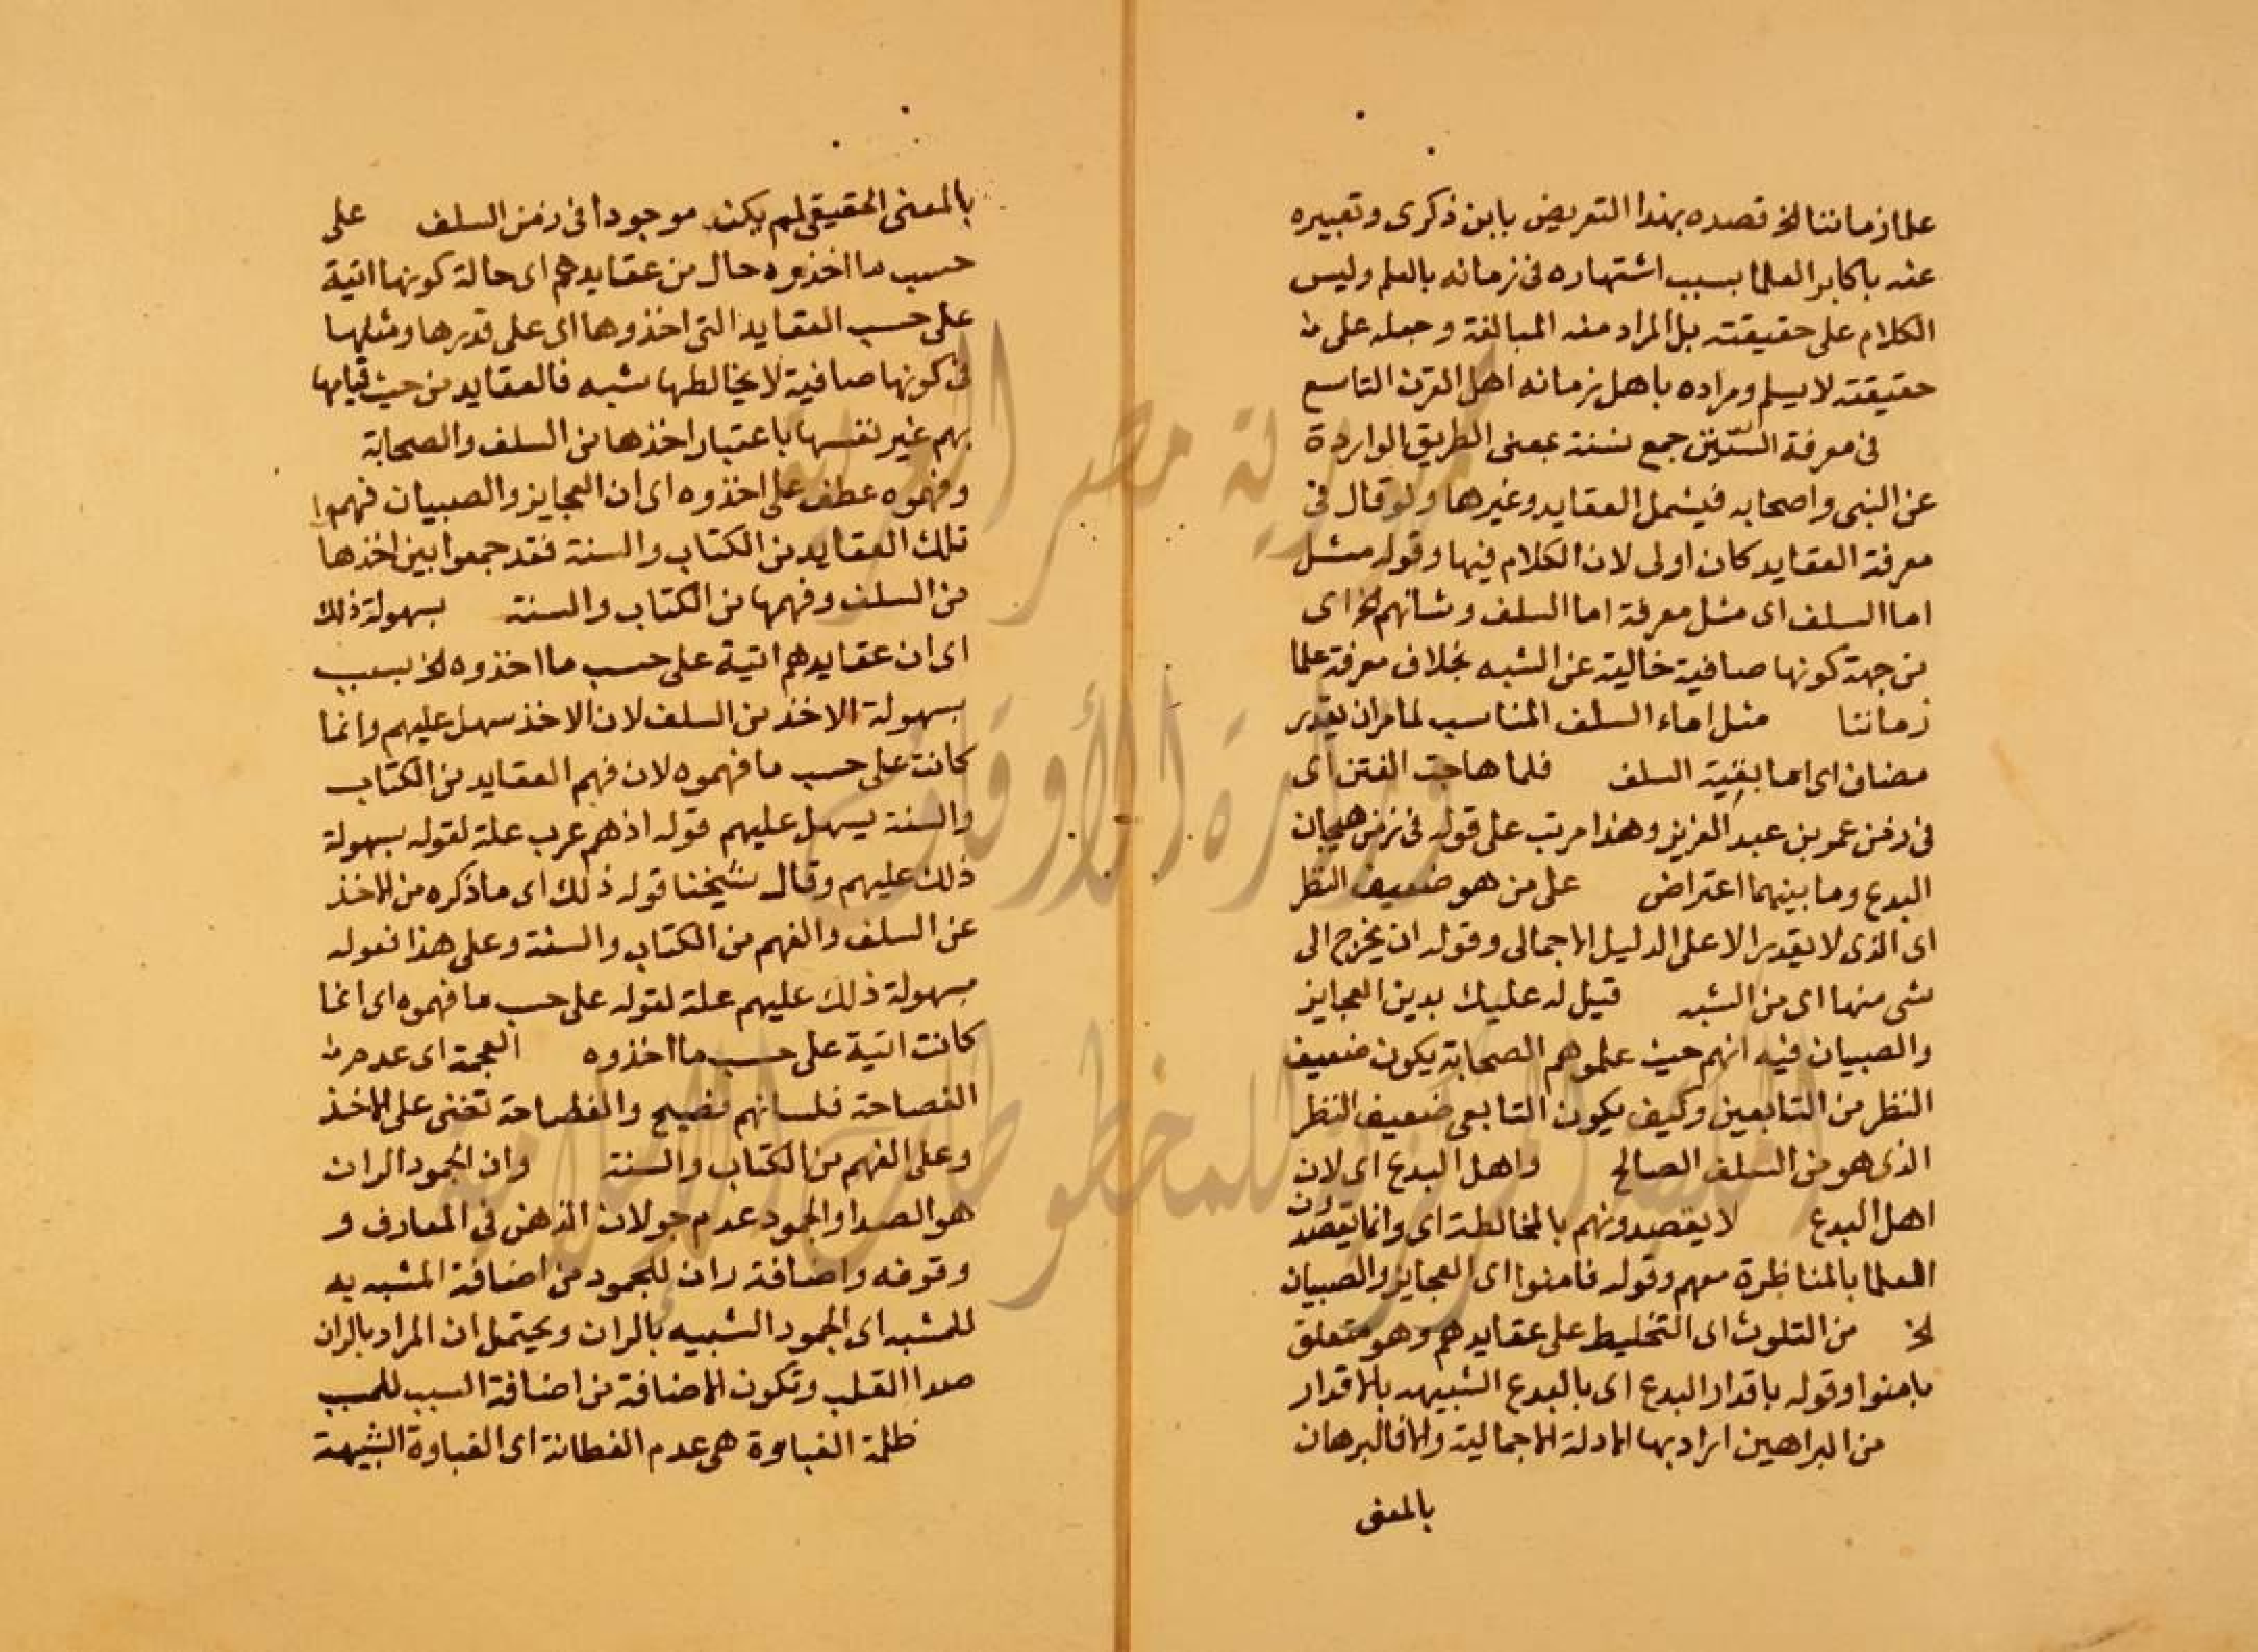 علما زماننا الخ قصده بهذا التعريض بابن ذكرى وتعبيره
عنه باكابر العلما بسبب اشتهاره فى زمانه بالعلم وليس
الكلام على حقيقته بل المراد منه المبالغة وحمله على
حقيقته لا يسلم ومراده باهل زمانه اهل القرن التاسع
فى معرفة السنن جمع سنة بمعنى الطريق الواردة
عن النبى واصحابه فيشمل العقايد وغيرها ولو قال فى
معرفة العقايد كان اولى لان الكلام فيها وقوله مثل
اما السلف اى مثل معرفة اما السلف وشانهم الخ اى
من جهة كونها صافية خالية عن الشبه بخلاف معرفة علما
زماننا مثل اماء السلف المناسب لما مر ان يقدر
مضاف اى اما بقية السلف فلما هاجت الفتن اى
فى زمن عمر بن عبد العزيز وهذا مرتب على قوله فى زمن هيجان
البدع وما بينهما اعتراض على من هو ضعيف النظر
اى الذى لا يقدر الا على الدليل الاجمالى وقوله ان يخرج الى
شى منها اى من الشبه قيل له عليك بدين العجايز
والصبيان فيه انهم حيث علموهم الصحابة يكون ضعيف
النظر من التابعين وكيف يكون التابعى ضعيف النظر
الذى هو من السلف الصالح واهل البدع اى لان
اهل البدع لا يقصدونهم بالمخالطة اى وانما يقصدون
العلما بالمناظرة معهم وقوله فامنوا اى العجايز والصبيان
الخ من التلوث اى التخليط على عقايدهم وهو متعلق
بامنوا وقوله باقدار البدع اى بالبدع الشبيهه بالاقدار
من البراهين اراد بها الادلة الاجمالية والا فالبرهان
بالمعنى
بالمعنى الحقيقى لم يكن موجودا فى زمن السلف على
حسب ما اخذوه حال من عقايدهم اى حالة كونها اتية
على حسب العقايد التى اخذوها اى على قدرها ومثلها
فى كونها صافية لا يخالطها شبه فالعقايد من حيث قيامها
بهم غير نفسها باعتبار اخذها من السلف والصحابة
وفهموه عطف على اخذوه اى ان العجايز والصبيان فهموا
تلك العقايد من الكتاب والسنة فقد جمعوا بين اخذها
من السلف وفهمها من الكتاب والسنة بسهولة ذلك
اى ان عقايدهم اتية على حسب ما اخذوه الخ بسبب
بسهولة الاخذ من السلف لان الاخذ سهل عليهم وانما
كانت على حسب ما فهموه لان فهم العقايد من الكتاب
والسنة يسهل عليهم قوله اذ هم عرب علة لقوله بسهولة
ذلك عليهم وقال شيخنا قوله ذلك اى ما ذكره من الاخذ
عن السلف والفهم من الكتاب والسنة وعلى هذا فقوله
بسهولة ذلك عليهم علة لقوله على حسب ما فهموه اى انما
كانت اتية على حسب ما اخذوه العجمة اى عدم
الفصاحة فلسانهم فصيح والفصاحة تعنى على الاخذ
وعلى الفهم من الكتاب والسنة وان الجمود الران
هو الصدا والجمود عدم جولان الذهن فى المعارف و
وقوفه واضافة ران للجمود من اضافة المشبه به
للمشبه اى الجمود الشبيه بالران ويحتمل ان المراد بالران
صدا القلب وتكون الاضافة من اضافة السبب للمسبب
ظلمة الغباوة هى عدم الفطانة اى الغباوة الشبيهة